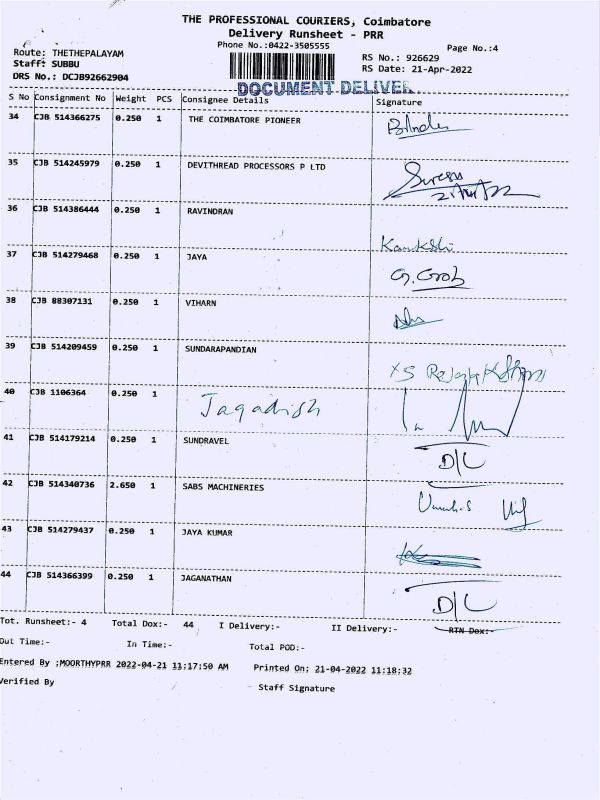 THE PROFESSIONAL COURIERS, Coimbatore
Delivery Runsheet - PRR
Phone No.:0422-3505555
Page No.:4
Route: THETHEPALAYAM
RS No.: 926629
Staff: SUBBU
RS Date: 21-Apr-2022
DRS No.: DCJB92662904
DOCUMENT DELIVER
S No Consignment No Weight PCS Consignee Details Signature
34 CJB 514366275 0.250 1 THE COIMBATORE PIONEER
35 CJB 514245979 0.250 1 DEVITHREAD PROCESSORS P LTD
36 CJB 514386444 0.250 1 RAVINDRAN
37 CJB 514279468 0.250 1 JAYA
38 CJB 88307131 0.250 1 VIHARN
39 CJB 514209459 0.250 1 SUNDARAPANDIAN
40 CJB 1106364 0.250 1 Jagadish
41 CJB 514179214 0.250 1 SUNDRAVEL D/L
42 CJB 514340736 2.650 1 SABS MACHINERIES
43 CJB 514279437 0.250 1 JAYA KUMAR
44 CJB 514366399 0.250 1 JAGANATHAN D/L
Tot. Runsheet:- 4 Total Dox:- 44 I Delivery:- II Delivery:- RTN Dox:-
Out Time:- In Time:- Total POD:-
Entered By ;MOORTHYPRR 2022-04-21 11:17:50 AM Printed On; 21-04-2022 11:18:32
Verified By Staff Signature